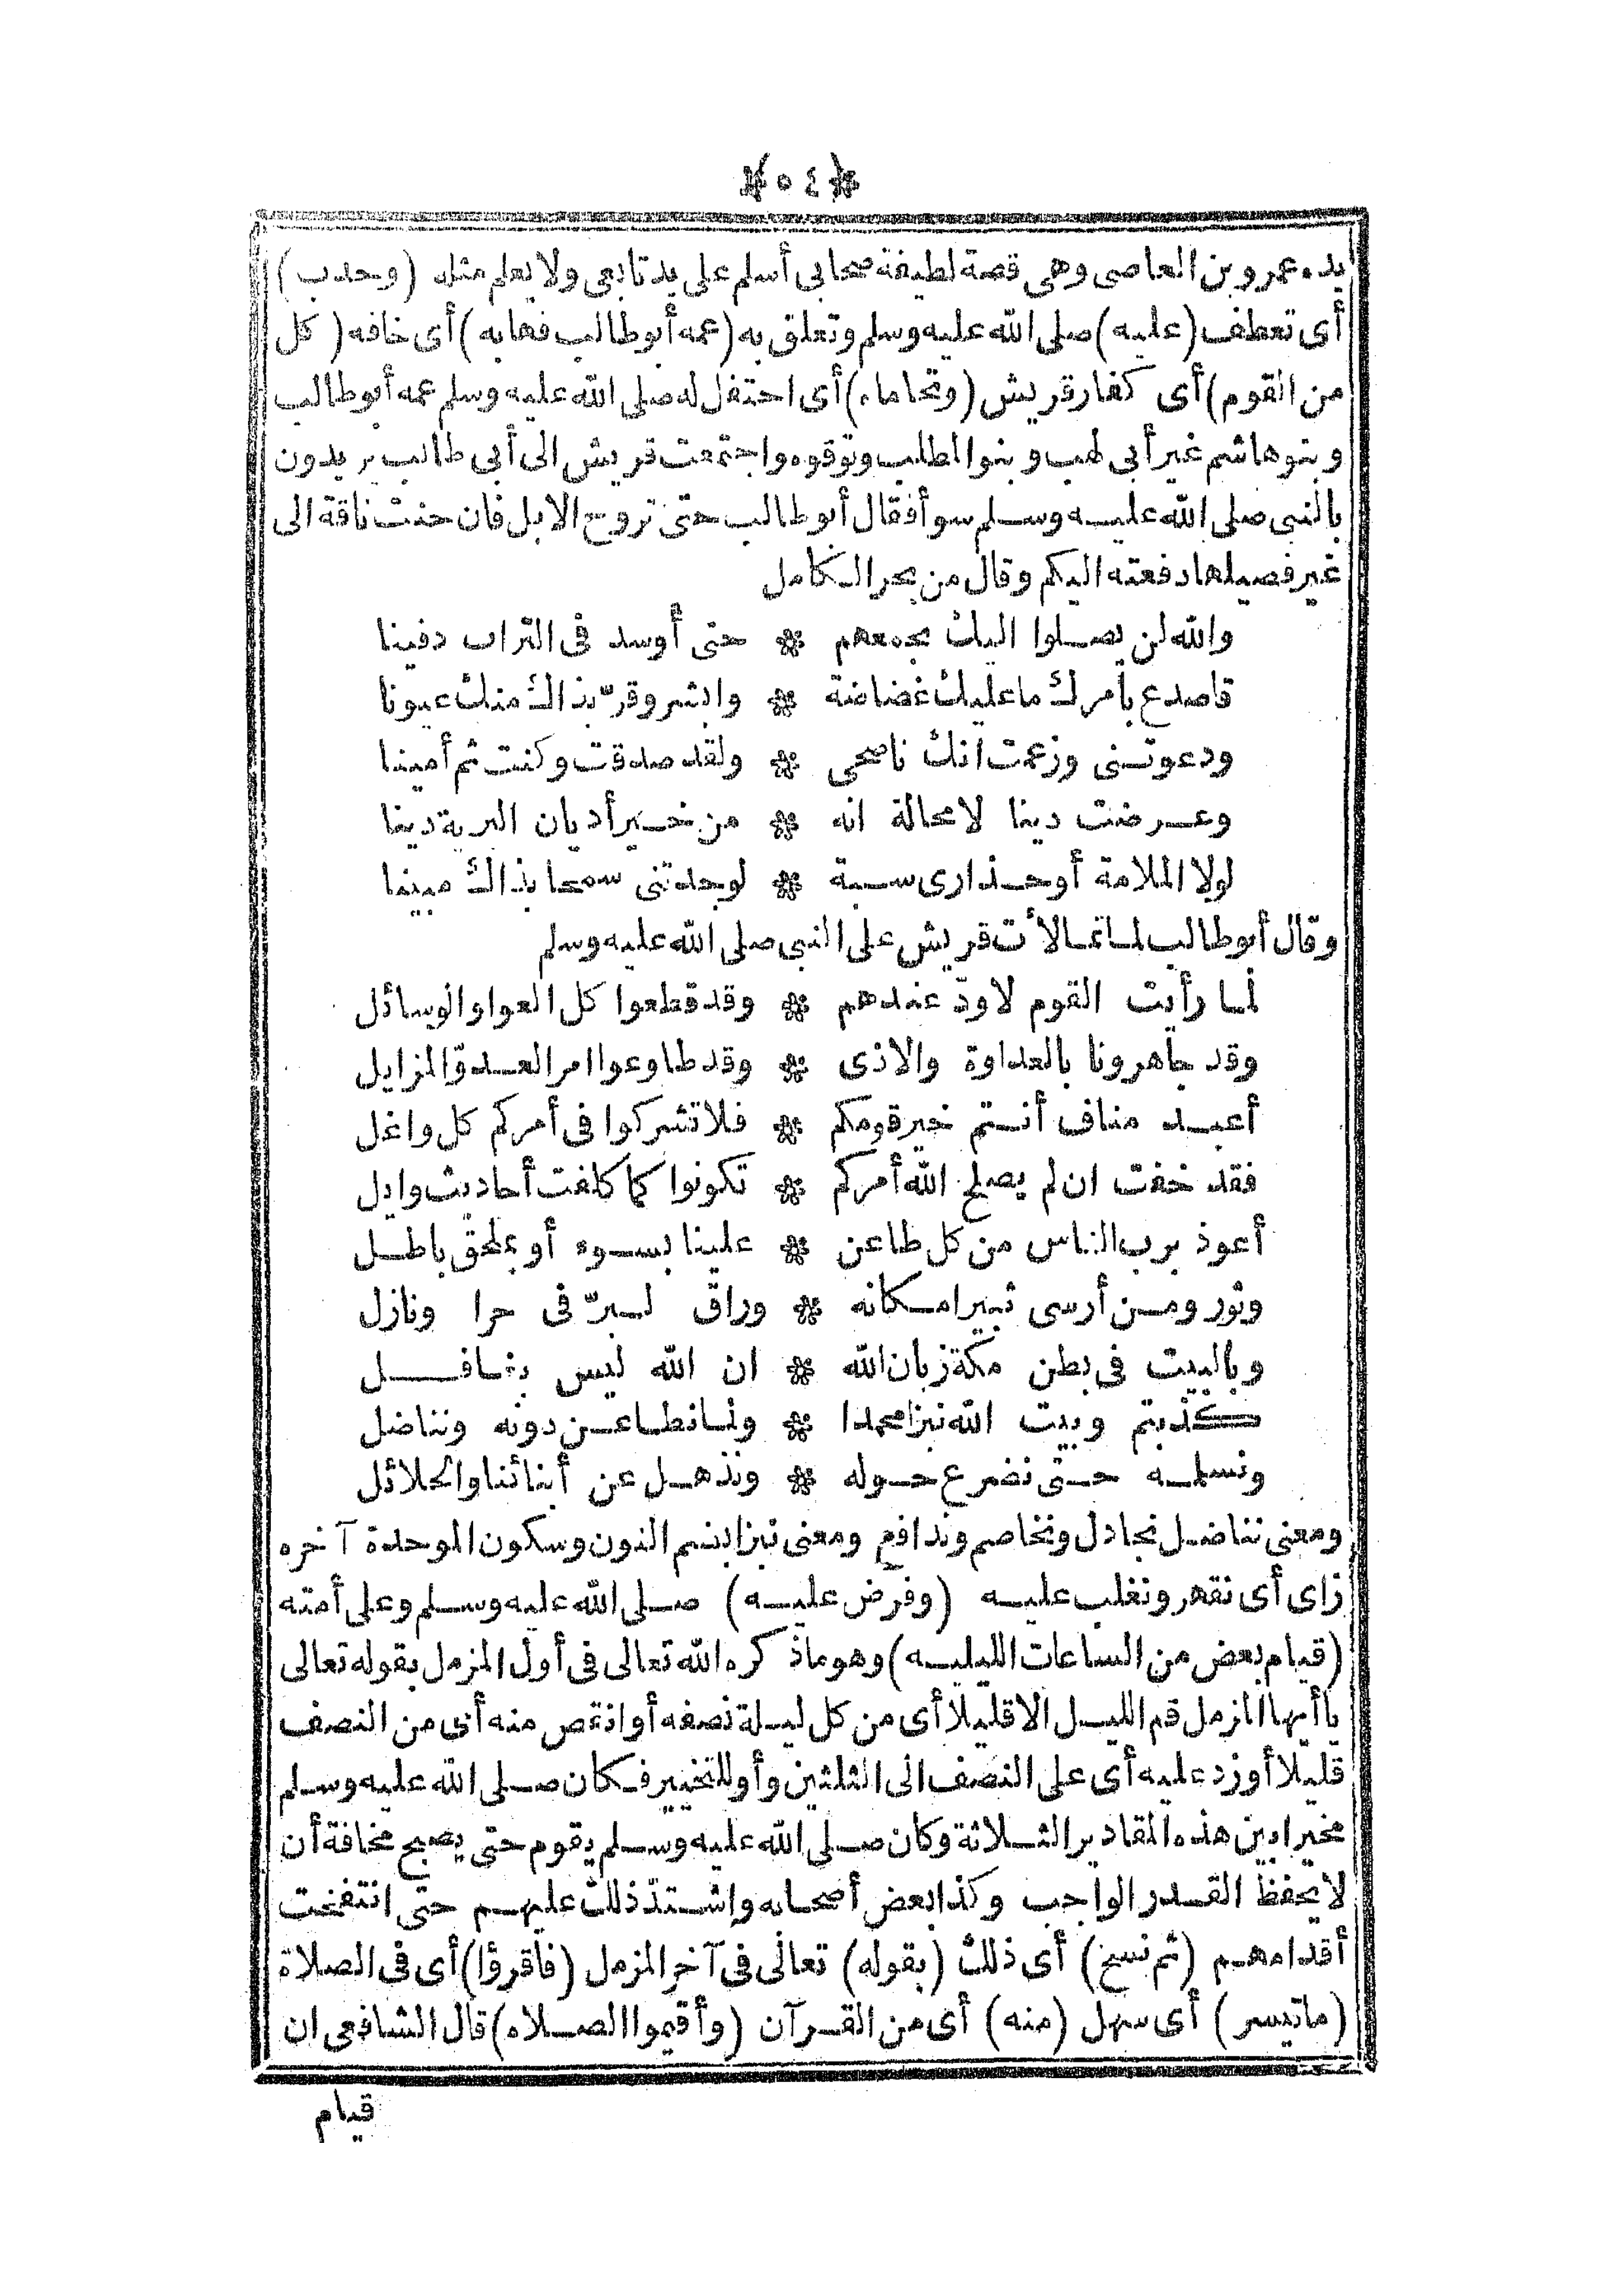 ﴿٥٤﴾
يده عمرو بن العاصى وهى قصة لطيفة صحابى أسلم على يد تابعى ولا يعلم مثله (وحدب)
أى تعطف (عليه) صلى الله عليه وسلم وتعلق به (عمه أبو طالب فهابه) أى خافه (كل
من القوم) أى كفار قريش (وتحاماه) أى احتفل له صلى الله عليه وسلم عمه أبو طالب
وبنو هاشم غير أبى لهب وبنو المطلب وتوقوه واجتمعت قريش الى أبى طالب يريدون
بالنبى صلى الله عليه وسلم سوأ فقال أبو طالب حتى تروح الابل فان حنت ناقة الى
غير فصيلها دفعته اليكم وقال من بحر الكامل
والله لن يصلوا اليك بجمعهم * حتى أوسد فى التراب دفينا
فاصدع بأمرك ما عليك غضاضة * وابشر وقرّ بذاك منك عيونا
ودعوتنى وزعمت انك ناصحى * ولقد صدقت وكنت ثم أمينا
وعرضت دينا لا محالة انه * من خير أديان البرية دينا
لولا الملامة أو حذارى سبة * لوجدتنى سمحا بذاك مبينا
وقال أبو طالب لما تمالأت قريش على النبى صلى الله عليه وسلم
لما رأيت القوم لا ودّ عندهم * وقد قطعوا كل العوا والوسائل
وقد جاهرونا بالعداوة والاذى * وقد طاوعوا امر العدوّ المزايل
أعبد مناف أنتم خير قومكم * فلا تشركوا فى أمركم كل واغل
فقد خفت ان لم يصلح الله أمركم * تكونوا كما كانت أحاديث وايل
أعوذ برب الناس من كل طاعن * علينا بسوء أو بملحق باطل
وثور ومن أرسى ثبيرا مكانه * وراق لبرّ فى حرا ونازل
وبالبيت فى بطن مكة زبان الله * ان الله ليس بغافل
كذبتم وبيت الله نبزا محمدا * ولما نطاعن دونه ونناضل
ونسلمه حتى نضرع حوله * ونذهل عن أبنائنا والحلائل
ومعنى نناضل نجادل ونخاصم وندافع ومعنى نبزا بضم النون وسكون الموحدة آخره
زاى أى نقهر ونغلب عليه (وفرض عليه) صلى الله عليه وسلم وعلى أمته
(قيام بعض من الساعات الليليه) وهو ما ذكره الله تعالى فى أول المزمل بقوله تعالى
يا أيها المزمل قم الليل الا قليلا أى من كل ليلة نصفه أو انقص منه أى من النصف
قليلا أو زد عليه أى على النصف الى الثلثين وأو للتخيير فكان صلى الله عليه وسلم
مخيرا بين هذه المقادير الثلاثة وكان صلى الله عليه وسلم يقوم حتى يصبح مخافة أن
لا يحفظ القدر الواجب وكذا بعض أصحابه واشتدّ ذلك عليهم حتى انتفخت
أقدامهم (ثم نسخ) أى ذلك (بقوله) تعالى فى آخر المزمل (فاقرؤا) أى فى الصلاة
(ما تيسر) أى سهل (منه) أى من القرآن (وأقيموا الصلاه) قال الشافعى ان
قيام